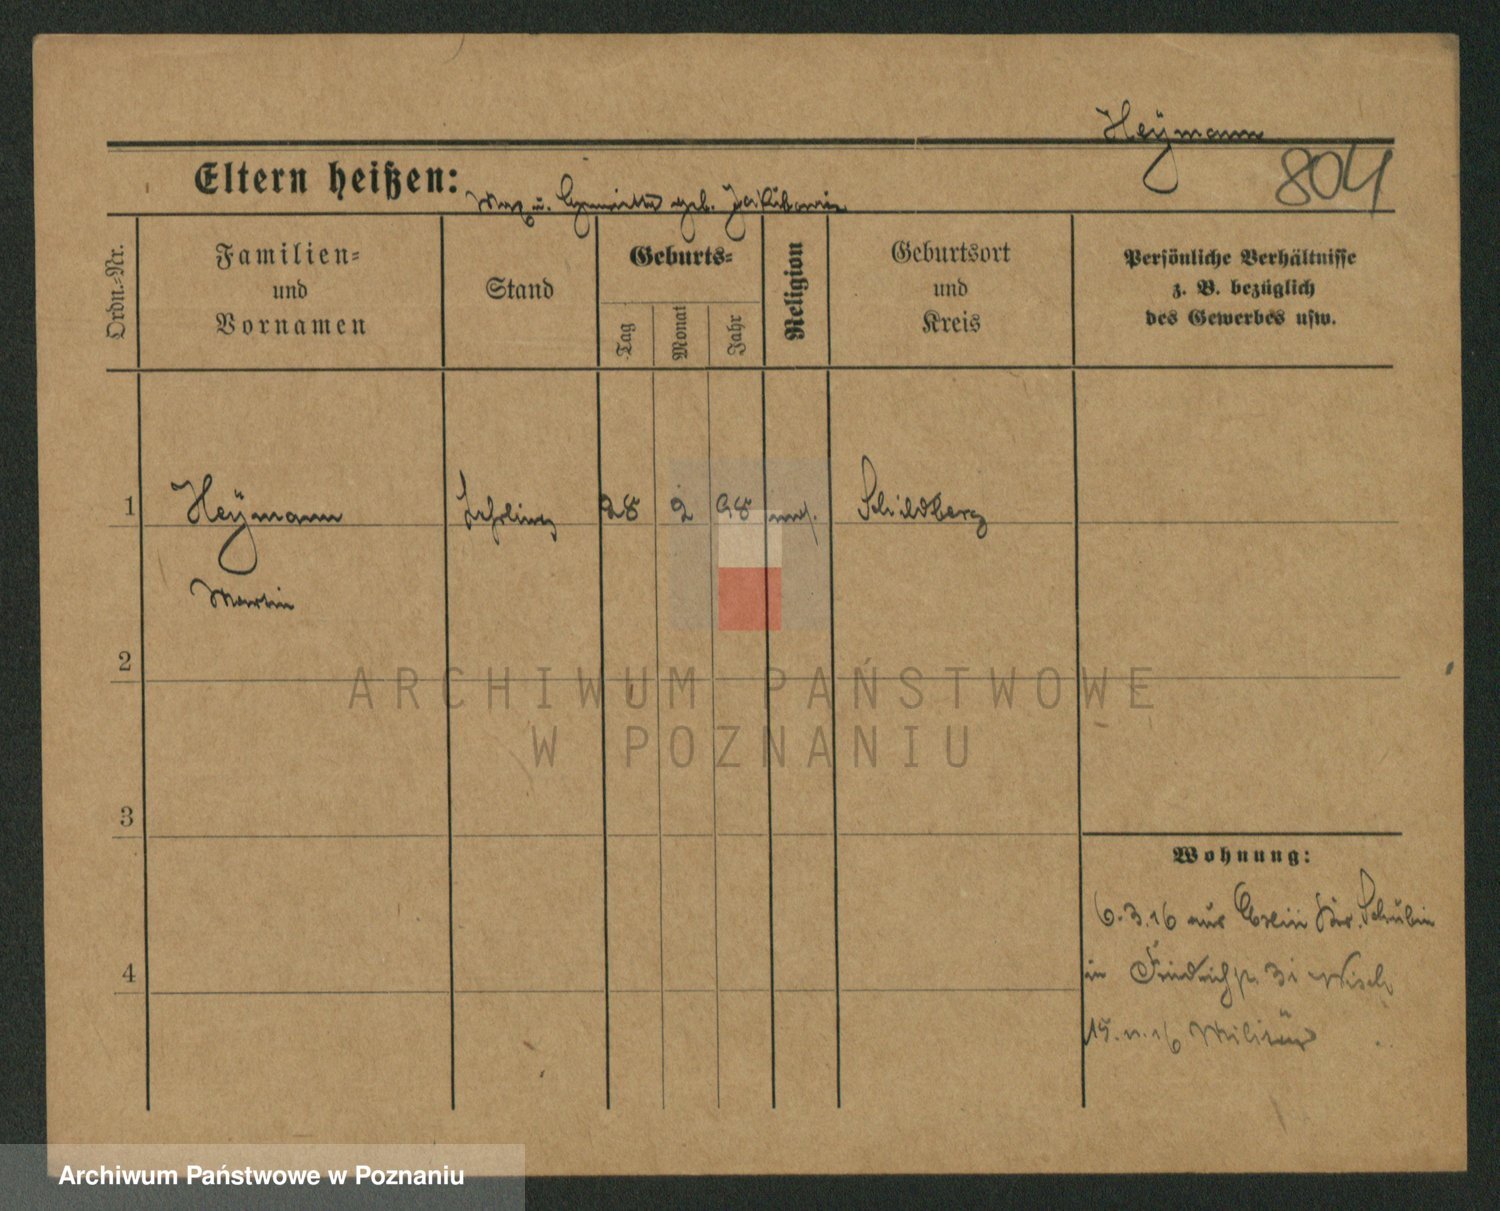 Heymann
804
Eltern heißen: Max u. Henriette geb. Jakubowicz
Ordn.-Nr.
Familien-
und
Vornamen
Stand
Geburts-
Tag
Monat
Jahr
Religion
Geburtsort
und
Kreis
Persönliche Verhältnisse
z. B. bezüglich
des Gewerbes usw.
1 Heymann Lehrling 28 2 98 mos. Schildberg
Martin
2
3
4
Wohnung:
6.3.16 aus Exin Kr. Schubin
in 3
15. 11. 16 Militär
ARCHIWUM PAŃSTWOWE
W POZNANIU
Archiwum Państwowe w Poznaniu